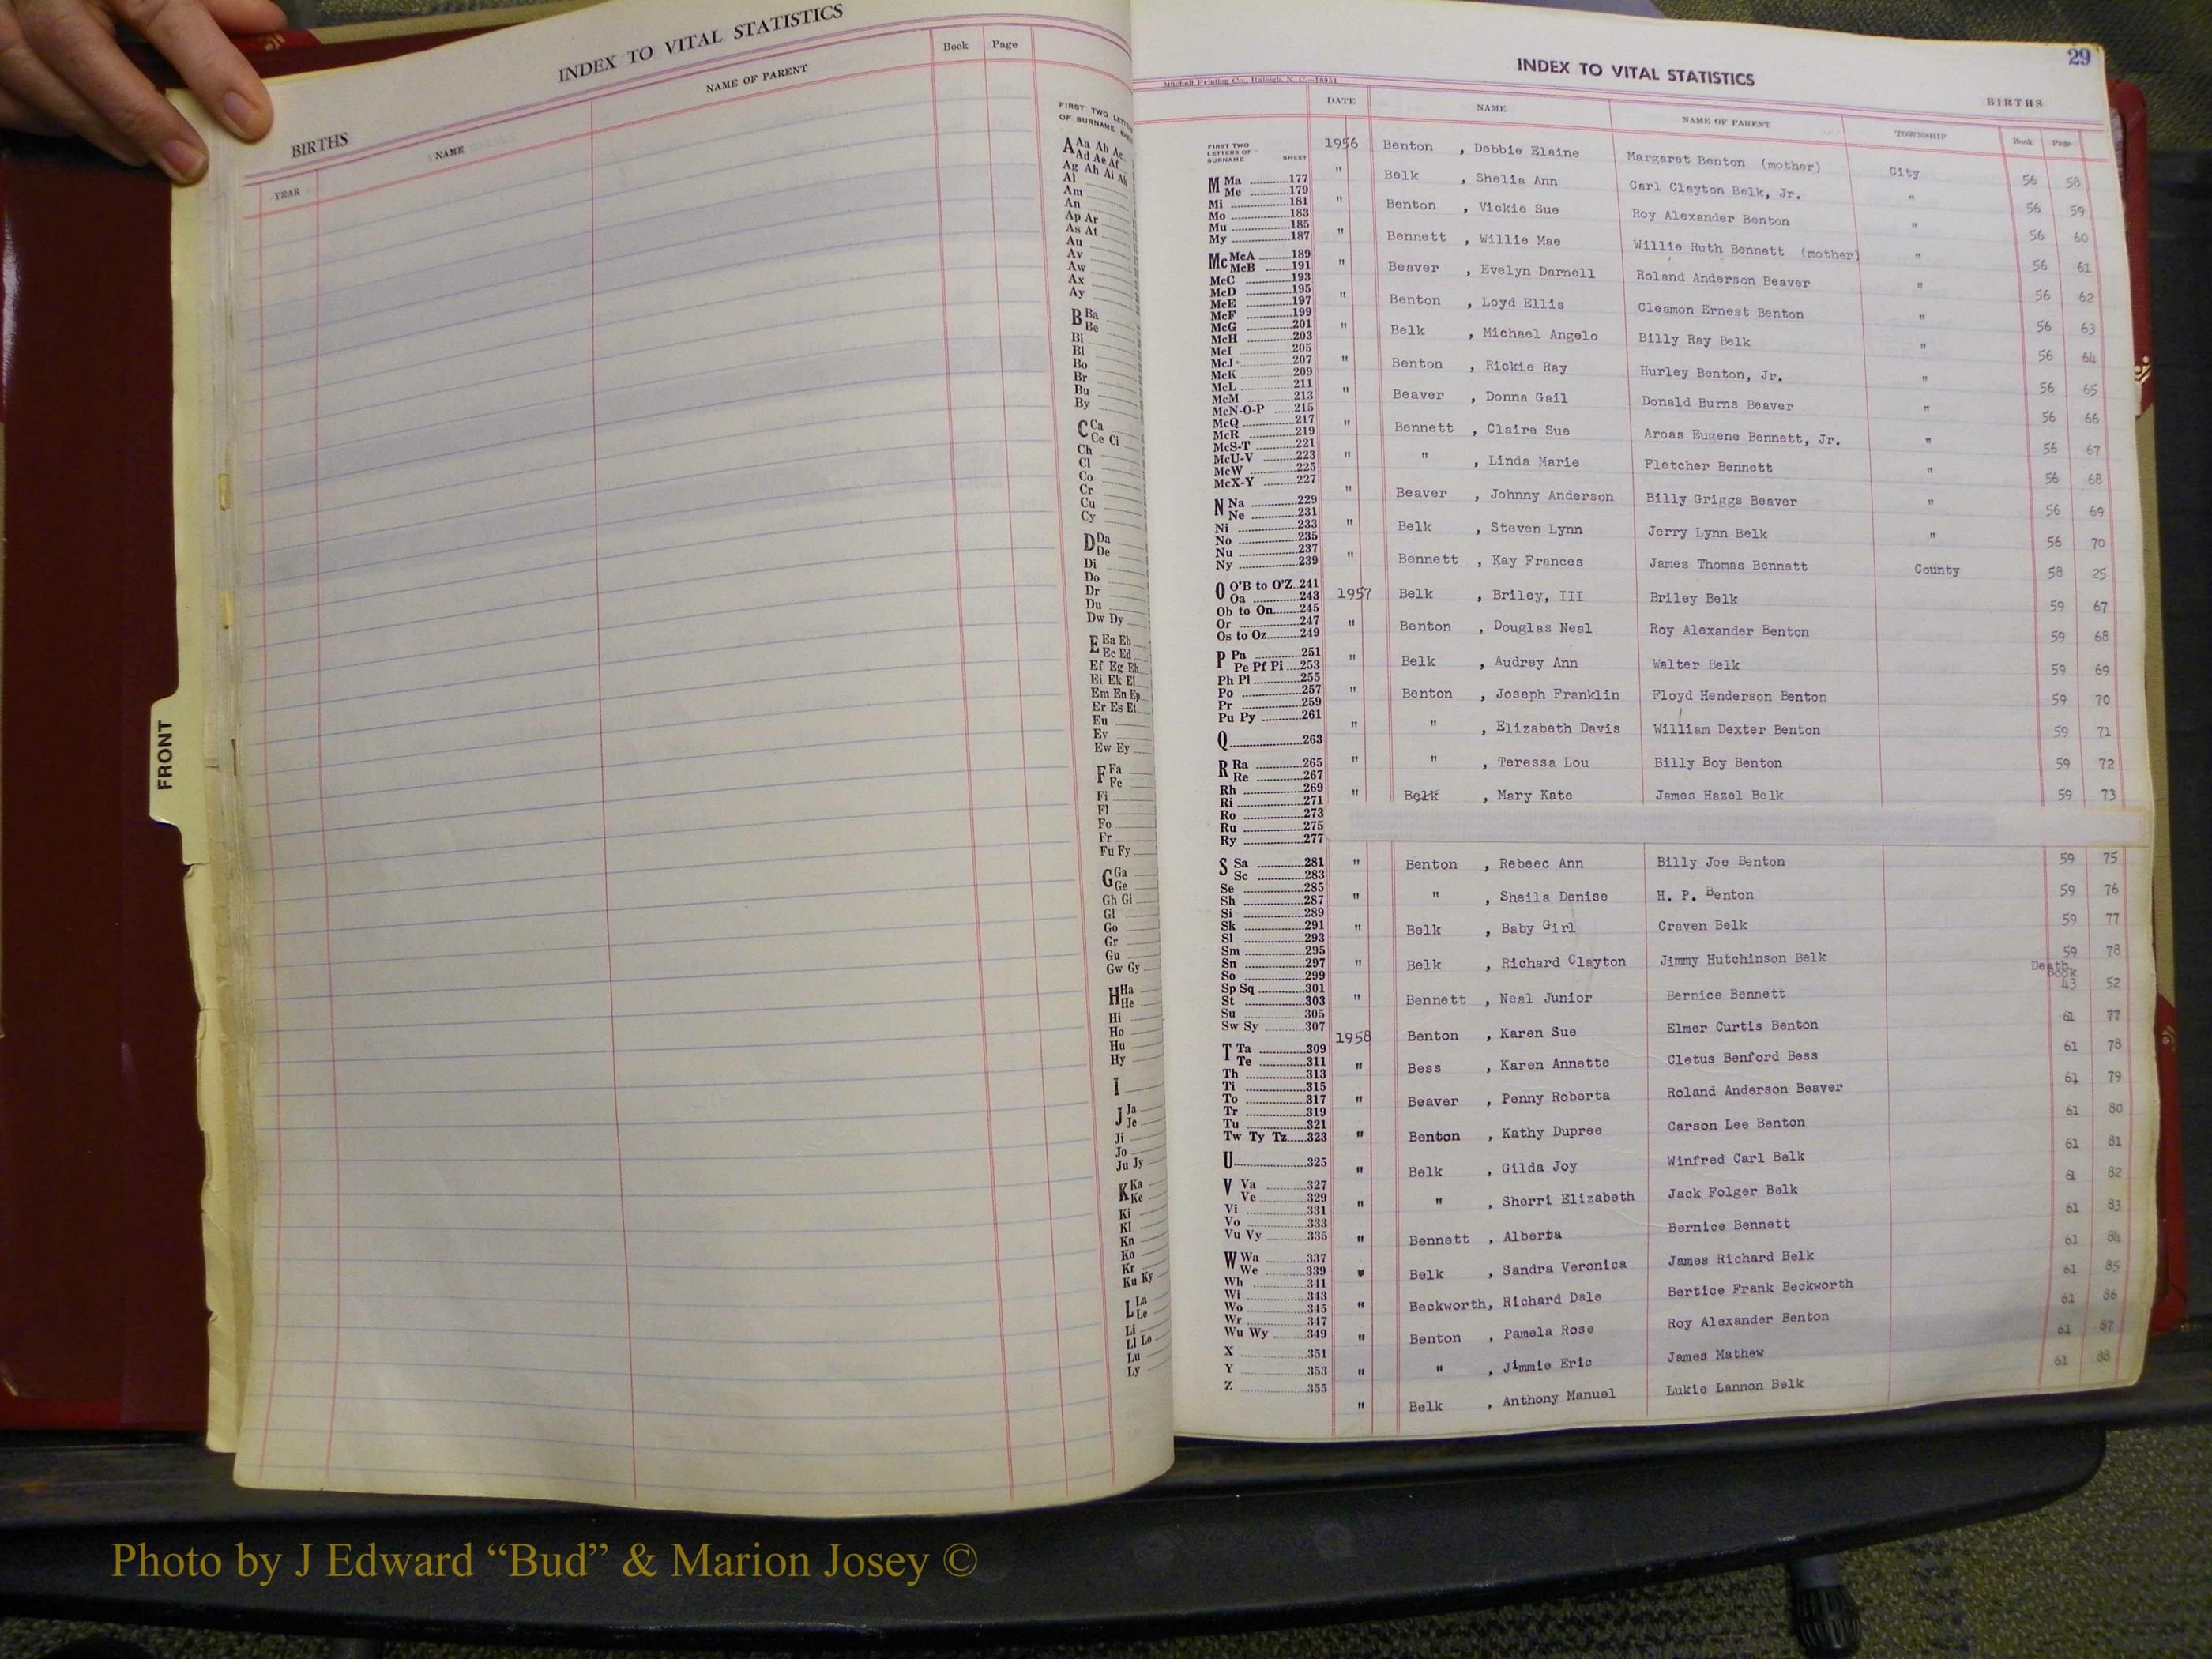 INDEX TO VITAL STATISTICS
BIRTHS
YEAR NAME NAME OF PARENT Book Page
FRONT
FIRST TWO
OF SURNAME
A Aa Ab Ac
Ad Ae Af
Ag Ah Ai Ak
Al
Am
An
Ap Ar
As At
Au
Av
Aw
Ax
Ay
B Ba
Be
Bi
Bl
Bo
Br
Bu
By
C Ca
Ce Ci
Ch
Cl
Co
Cr
Cu
Cy
D Da
De
Di
Do
Dr
Du
Dw Dy
E Ea Eb
Ec Ed
Ef Eg Eh
Ei Ek El
Em En Ep
Er Es Et
Eu
Ev
Ew Ey
F Fa
Fe
Fi
Fl
Fo
Fr
Fu Fy
G Ga
Ge
Gh Gi
Gl
Go
Gr
Gu
Gw Gy
H Ha
He
Hi
Ho
Hu
Hy
I
J Ja
Je
Ji
Jo
Ju Jy
K Ka
Ke
Ki
Kl
Kn
Ko
Kr
Ku Ky
L La
Le
Li
Ll Lo
Lu
Ly
29
INDEX TO VITAL STATISTICS
Mitchell Printing Co., Raleigh, N. C.
BIRTHS
DATE NAME NAME OF PARENT TOWNSHIP Book Page
FIRST TWO
LETTERS OF
SURNAME SHEET
M Ma 177
Me 179
Mi 181
Mo 183
Mu 185
My 187
Mc McA 189
McB 191
McC 193
McD 195
McE 197
McF 199
McG 201
McH 203
McI 205
McJ 207
McK 209
McL 211
McM 213
McN-O-P 215
McQ 217
McR 219
McS-T 221
McU-V 223
McW 225
McX-Y 227
N Na 229
Ne 231
Ni 233
No 235
Nu 237
Ny 239
O O'B to O'Z 241
Oa 243
Ob to On 245
Or 247
Os to Oz 249
P Pa 251
Pe Pf Pi 253
Ph Pl 255
Po 257
Pr 259
Pu Py 261
Q 263
R Ra 265
Re 267
Rh 269
Ri 271
Ro 273
Ru 275
Ry 277
S Sa 281
Sc 283
Se 285
Sh 287
Si 289
Sk 291
Sl 293
Sm 295
Sn 297
So 299
Sp Sq 301
St 303
Su 305
Sw Sy 307
T Ta 309
Te 311
Th 313
Ti 315
To 317
Tr 319
Tu 321
Tw Ty Tz 323
U 325
V Va 327
Ve 329
Vi 331
Vo 333
Vu Vy 335
W Wa 337
We 339
Wh 341
Wi 343
Wo 345
Wr 347
Wu Wy 349
X 351
Y 353
Z 355
1956 Benton , Debbie Elaine Margaret Benton (mother) City 56 58
" Belk , Shelia Ann Carl Clayton Belk, Jr. " 56 59
" Benton , Vickie Sue Roy Alexander Benton " 56 60
" Bennett , Willie Mae Willie Ruth Bennett (mother) " 56 61
" Beaver , Evelyn Darnell Roland Anderson Beaver " 56 62
" Benton , Loyd Ellis Cleamon Ernest Benton " 56 63
" Belk , Michael Angelo Billy Ray Belk " 56 64
" Benton , Rickie Ray Hurley Benton, Jr. " 56 65
" Beaver , Donna Gail Donald Burns Beaver " 56 66
" Bennett , Claire Sue Aroas Eugene Bennett, Jr. " 56 67
" " , Linda Marie Fletcher Bennett " 56 68
" Beaver , Johnny Anderson Billy Griggs Beaver " 56 69
" Belk , Steven Lynn Jerry Lynn Belk " 56 70
" Bennett , Kay Frances James Thomas Bennett County 58 25
1957 Belk , Briley, III Briley Belk 59 67
" Benton , Douglas Neal Roy Alexander Benton 59 68
" Belk , Audrey Ann Walter Belk 59 69
" Benton , Joseph Franklin Floyd Henderson Benton 59 70
" " , Elizabeth Davis William Dexter Benton 59 71
" " , Teressa Lou Billy Boy Benton 59 72
" Belk , Mary Kate James Hazel Belk 59 73
" Benton , Rebeec Ann Billy Joe Benton 59 75
" " , Sheila Denise H. P. Benton 59 76
" Belk , Baby Girl Craven Belk 59 77
" Belk , Richard Clayton Jimmy Hutchinson Belk 59 78
" Bennett , Neal Junior Bernice Bennett Death Book 43 52
1958 Benton , Karen Sue Elmer Curtis Benton 61 77
" Bess , Karen Annette Cletus Benford Bess 61 78
" Beaver , Penny Roberta Roland Anderson Beaver 61 79
" Benton , Kathy Dupree Carson Lee Benton 61 80
" Belk , Gilda Joy Winfred Carl Belk 61 81
" " , Sherri Elizabeth Jack Folger Belk 61 82
" Bennett , Alberta Bernice Bennett 61 83
" Belk , Sandra Veronica James Richard Belk 61 84
" Beckworth, Richard Dale Bertice Frank Beckworth 61 85
" Benton , Pamela Rose Roy Alexander Benton 61 86
" " , Jimmie Eric James Mathew 61 87
" Belk , Anthony Manuel Lukie Lannon Belk 61 88
Photo by J Edward “Bud” & Marion Josey ©